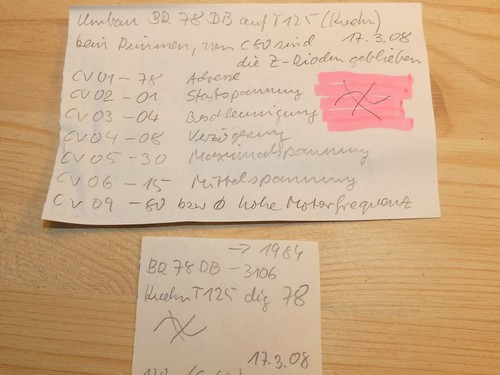 Umbau BR 78 DB auf T125 (Kuehn)
beim Brummen, von C80 sind 17.3.08
die Z-Dioden geblieben
CV01 - 78 Adresse
CV02 - 01 Startspannung
CV03 - 04 Beschleunigung
CV04 - 08 Verzögerung
CV05 - 30 Maximalspannung
CV06 - 15 Mittelspannung
CV09 - 80 bzw 0 hohe Motorfrequenz
→ 1984
BR 78 DB - 3106
Kuehn T125 dig 78
17.3.08